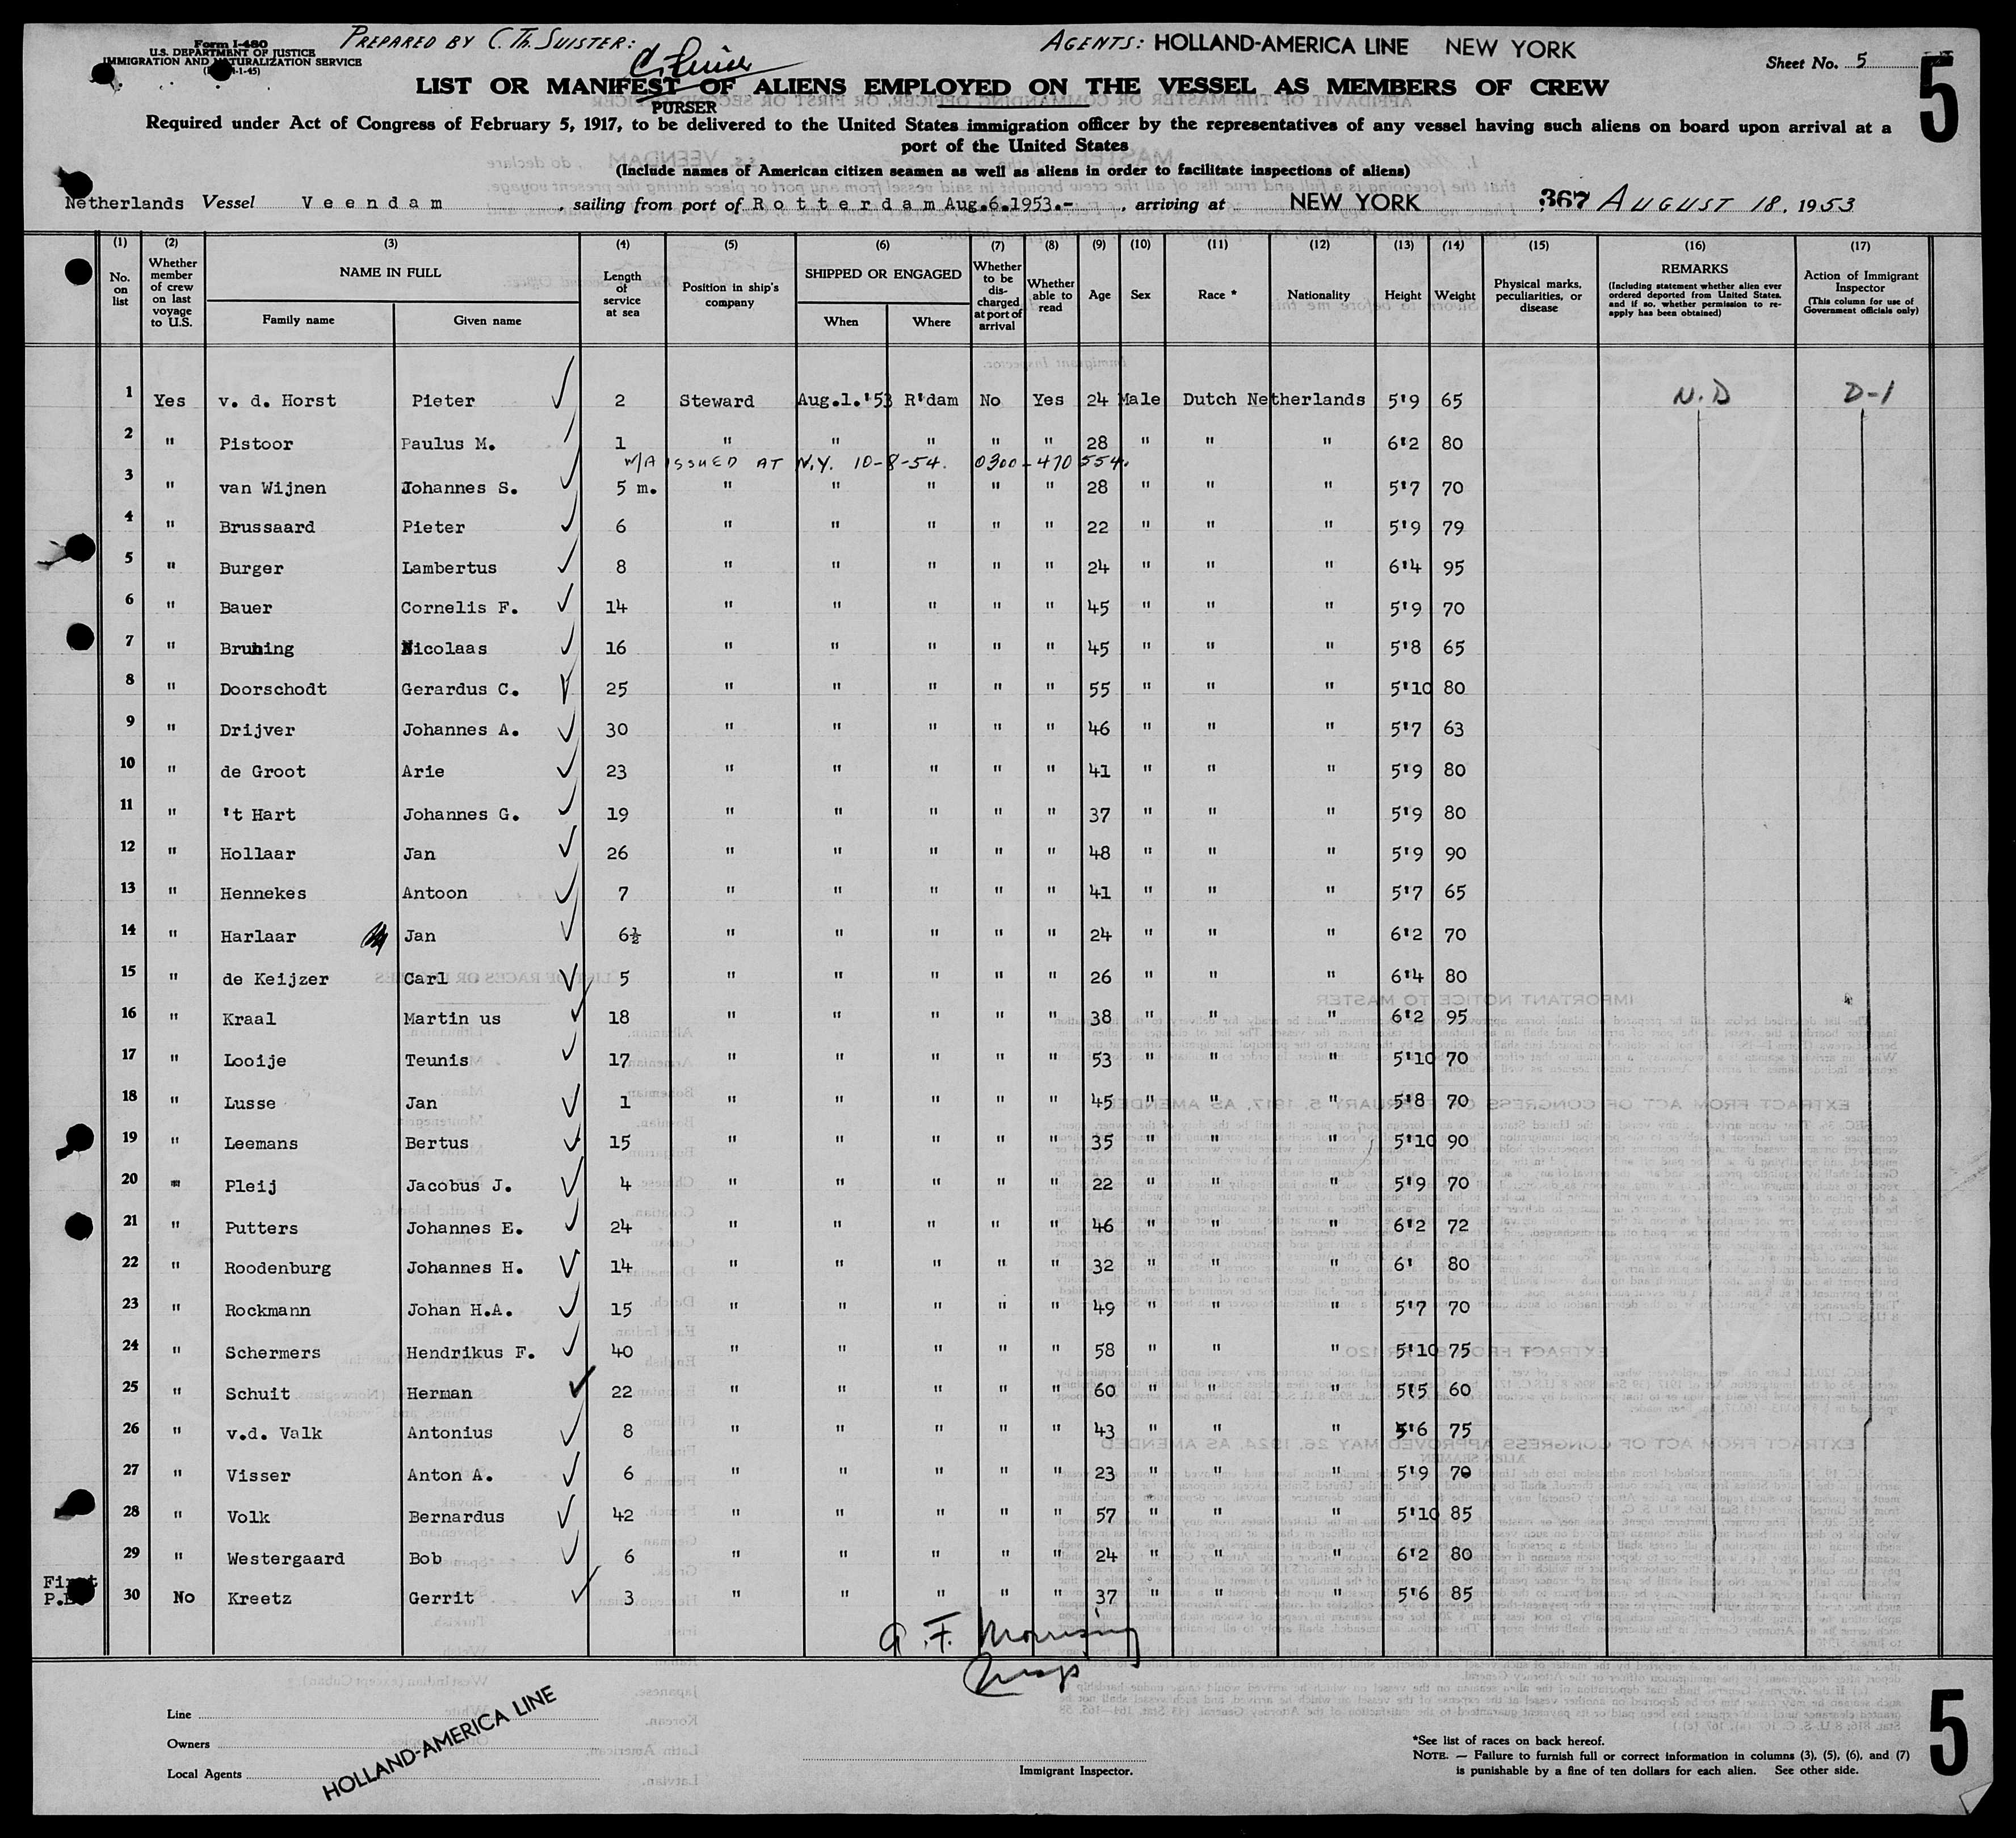 Form I-480
U.S. DEPARTMENT OF JUSTICE
IMMIGRATION AND NATURALIZATION SERVICE
PREPARED BY C. Th. SUISTER:
AGENTS: HOLLAND-AMERICA LINE NEW YORK
Sheet No. 5
5
LIST OR MANIFEST OF ALIENS EMPLOYED ON THE VESSEL AS MEMBERS OF CREW
PURSER
Required under Act of Congress of February 5, 1917, to be delivered to the United States immigration officer by the representatives of any vessel having such aliens on board upon arrival at a
port of the United States
(Include names of American citizen seamen as well as aliens in order to facilitate inspections of aliens)
Netherlands Vessel Veendam, sailing from port of Rotterdam Aug.6.1953.-, arriving at NEW YORK 367 AUGUST 18, 1953
(1) (2) (3) (4) (5) (6) (7) (8) (9) (10) (11) (12) (13) (14) (15) (16) (17)
No. on list
Whether member of crew on last voyage to U.S.
NAME IN FULL
Family name
Given name
Length of service at sea
Position in ship's company
SHIPPED OR ENGAGED
When
Where
Whether to be discharged at port of arrival
Whether able to read
Age
Sex
Race *
Nationality
Height
Weight
Physical marks, peculiarities, or disease
REMARKS
(Including statement whether alien ever ordered deported from United States, and if so, whether permission to reapply has been obtained)
Action of Immigrant Inspector
(This column for use of Government officials only)
1 Yes v. d. Horst Pieter 2 Steward Aug.1.'53 R'dam No Yes 24 Male Dutch Netherlands 5'9 65 N.D D-1
2 " Pistoor Paulus M. 1 " " " " " 28 " " " 6'2 80
W/A ISSUED AT N.Y. 10-8-54. 0300-470 554.
3 " van Wijnen Johannes S. 5 m. " " " " " 28 " " " 5'7 70
4 " Brussaard Pieter 6 " " " " " 22 " " " 5'9 79
5 " Burger Lambertus 8 " " " " " 24 " " " 6'4 95
6 " Bauer Cornelis F. 14 " " " " " 45 " " " 5'9 70
7 " Bruning Nicolaas 16 " " " " " 45 " " " 5'8 65
8 " Doorschodt Gerardus C. 25 " " " " " 55 " " " 5'10 80
9 " Drijver Johannes A. 30 " " " " " 46 " " " 5'7 63
10 " de Groot Arie 23 " " " " " 41 " " " 5'9 80
11 " 't Hart Johannes G. 19 " " " " " 37 " " " 5'9 80
12 " Hollaar Jan 26 " " " " " 48 " " " 5'9 90
13 " Hennekes Antoon 7 " " " " " 41 " " " 5'7 65
14 " Harlaar Jan 6½ " " " " " 24 " " " 6'2 70
15 " de Keijzer Carl 5 " " " " " 26 " " " 6'4 80
16 " Kraal Martin us 18 " " " " " 38 " " " 6'2 95
17 " Looije Teunis 17 " " " " " 53 " " " 5'10 70
18 " Lusse Jan 1 " " " " " 45 " " " 5'8 70
19 " Leemans Bertus 15 " " " " " 35 " " " 5'10 90
20 " Pleij Jacobus J. 4 " " " " " 22 " " " 5'9 70
21 " Putters Johannes E. 24 " " " " " 46 " " " 6'2 72
22 " Roodenburg Johannes H. 14 " " " " " 32 " " " 6' 80
23 " Rockmann Johan H.A. 15 " " " " " 49 " " " 5'7 70
24 " Schermers Hendrikus F. 40 " " " " " 58 " " " 5'10 75
25 " Schuit Herman 22 " " " " " 60 " " " 5'5 60
26 " v.d. Valk Antonius 8 " " " " " 43 " " " 5'6 75
27 " Visser Anton A. 6 " " " " " 23 " " " 5'9 70
28 " Volk Bernardus 42 " " " " " 57 " " " 5'10 85
29 " Westergaard Bob 6 " " " " " 24 " " " 6'2 80
First
30 No Kreetz Gerrit 3 " " " " " 37 " " " 5'6 85
Line
Owners
Local Agents
HOLLAND-AMERICA LINE
Immigrant Inspector.
*See list of races on back hereof.
NOTE. — Failure to furnish full or correct information in columns (3), (5), (6), and (7)
is punishable by a fine of ten dollars for each alien. See other side.
5